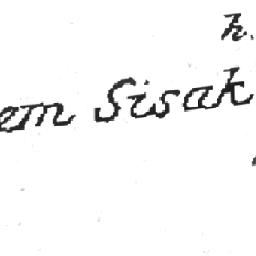 h.
em Sisak